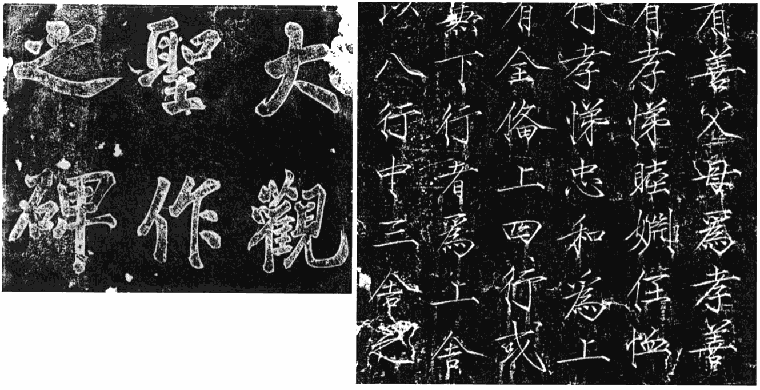 大觀
聖作
之碑
有善父母爲孝善
有孝悌睦婣任恤
行孝悌忠和爲上
有全備上四行或
兼下行者爲上舍
以八行中三舍之